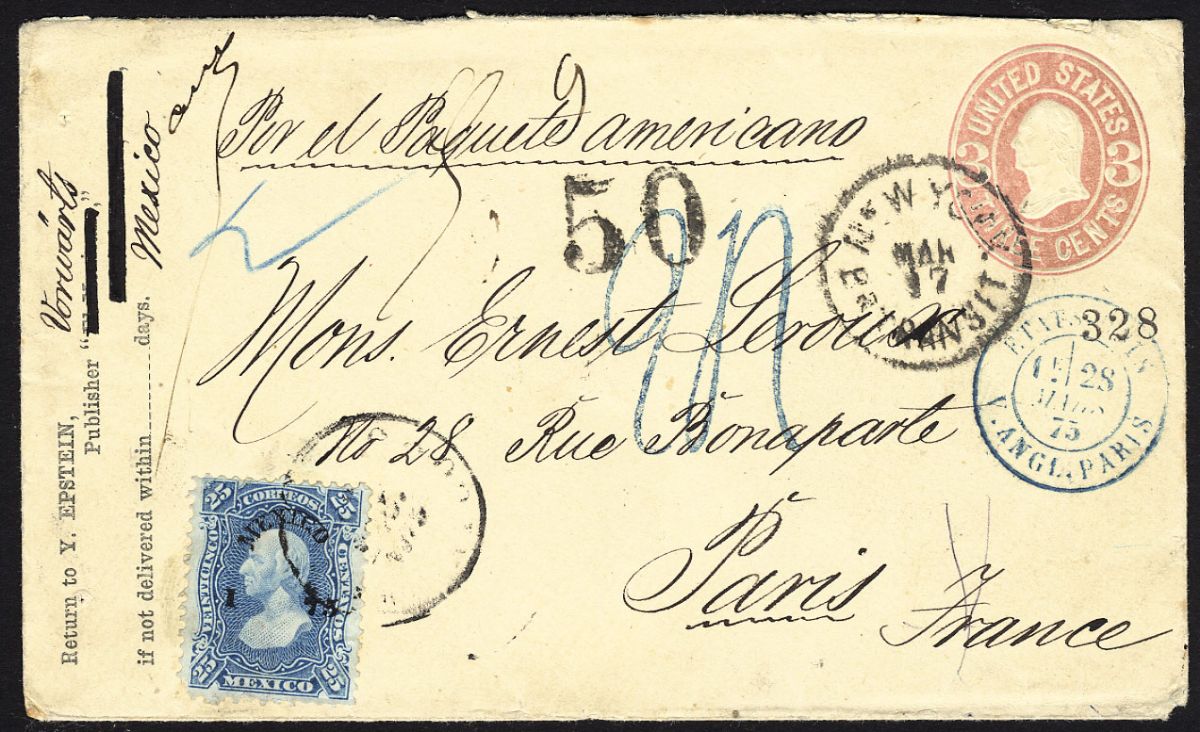 Return to Y. EPSTEIN,
Vorwärts
Publisher "
if not delivered within days.
Mexico
Por el Paquete americano
UNITED STATES
3 3
THREE CENTS
50
NEW YORK
MAR
17
TRANSIT
Mons. Ernest Leroux
No 28 Rue Bonaparte
Paris
France
328
ETATS UNIS
28
MARS
75
V. ANGL. PARIS
25 CORREOS 25
MEXICO
VEINTICINCO
CENTAVOS
1 75
25 MEXICO 25